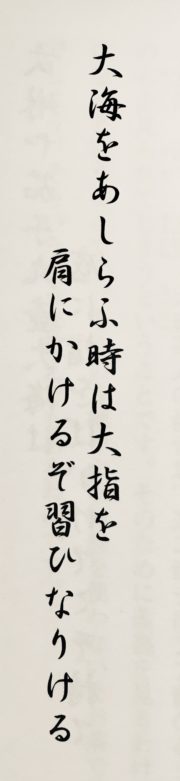 大海をあしらふ時は大指を
肩にかけるぞ習ひなりける